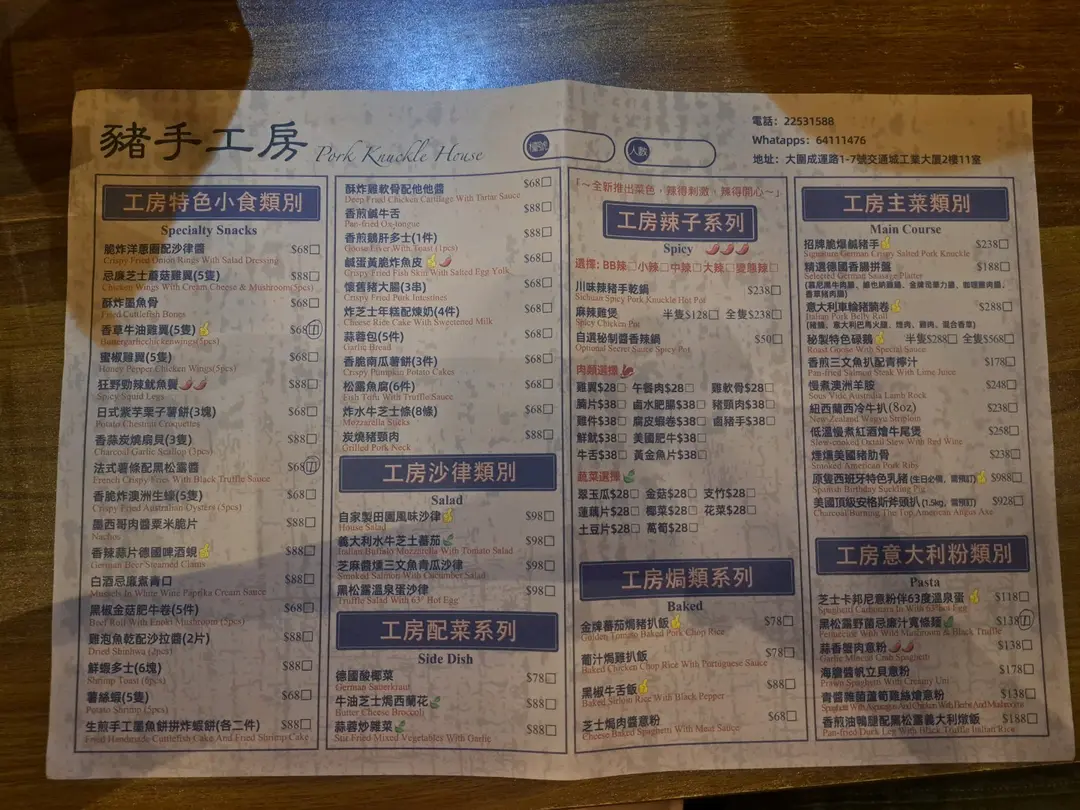 豬手工房 Pork Knuckle House
檯號
人數
電話：22531588
Whatapps：64111476
地址：大圍成運路1-7號交通城工業大厦2樓11室
工房特色小食類別
Specialty Snacks
脆炸洋蔥圈配沙律醬 $68
Crispy Fried Onion Rings With Salad Dressing
忌廉芝士蘑菇雞翼(5隻) $88
Chicken Wings With Cream Cheese & Mushroom(5pcs)
酥炸墨魚骨 $68
Fried Cuttlefish Bones
香草牛油雞翼(5隻) $68
Buttergarlicchickenwings(5pcs)
蜜椒雞翼(5隻) $68
Honey Pepper Chicken Wings(5pcs)
狂野勁辣魷魚鬚 $88
Spicy Squid Legs
日式紫芋栗子薯餅(3塊) $68
Potato Chestnut Croquettes
香蒜炭燒扇貝(3隻) $88
Charcoal Garlic Scallop (3pcs)
法式薯條配黑松露醬 $68
French Fries With Black Truffle Sauce
香脆炸澳洲生蠔(5隻) $68
Crispy Fried Australian Oysters (5pcs)
墨西哥肉醬粟米脆片 $88
Nachos
香辣蒜片德國啤酒蜆 $88
German Beer Steamed Clams
白酒忌廉煮青口 $88
Mussels In White Wine Paprika Cream Sauce
黑椒金菇肥牛卷(5件) $68
Beef Roll With Enoki Mushroom (5pcs)
雞泡魚乾配沙拉醬(2片) $88
Dried Shimiwa (2pcs)
鮮蝦多士(6塊) $88
Shrimp Toast (6pcs)
薯絲蝦(5隻) $68
Potato Shrimp (5pcs)
生煎手工墨魚餅拼炸蝦餅(各二件) $88
Fried Handmade Cuttlefish Cake And Fried Shrimp Cake
酥炸雞軟骨配他他醬 $68
Deep Fried Chicken Cartilage With Tartar Sauce
香煎鹹牛舌 $88
Pan-fried Ox-tongue
香煎鵝肝多士(1件) $88
Goose Liver With Toast (1pcs)
鹹蛋黃脆炸魚皮 $68
Crispy Fried Fish Skin With Salted Egg Yolk
懷舊豬大腸(3串) $68
Crispy Fried Pork Intestines
炸芝士年糕配煉奶(4件) $68
Cheese Rice Cake With Sweetened Milk
蒜蓉包(5件) $68
Garlic Bread
香脆南瓜薯餅(3件) $68
Crispy Pumpkin Potato Cakes
松露魚腐(6件) $68
Fish Tofu With Truffle Sauce
炸水牛芝士條(8條) $68
Mozzarella Sticks
炭燒豬頸肉 $88
Grilled Pork Neck
工房沙律類別
Salad
自家製田園風味沙律 $98
House Salad
義大利水牛芝士蕃茄 $98
Italian Buffalo Mozzarella With Tomato Salad
芝麻醬燻三文魚青瓜沙律 $98
Smoked Salmon With Cucumber Salad
黑松露溫泉蛋沙律 $98
Truffle Salad With 63° Hot Egg
工房配菜系列
Side Dish
德國酸椰菜 $78
German Sauerkraut
牛油芝士焗西蘭花 $88
Butter Cheese Broccoli
蒜蓉炒雜菜 $88
Stir Fried Mixed Vegetables With Garlic
「～全新推出菜色，辣得刺激，辣得開心～」
工房辣子系列
Spicy
選擇：BB辣 小辣 中辣 大辣 變態辣
川味辣豬手乾鍋 $238
Sichuan Spicy Pork Knuckle Hot Pot
麻辣雞煲 半隻$128 全隻$238
Spicy Chicken Pot
自選秘制醬香辣鍋 $50
Optional Secret Sauce Spicy Pot
肉類選擇
雞翼$28 午餐肉$28 雞軟骨$28
腩片$38 鹵水肥腸$38 豬頸肉$38
雞件$38 腐皮蝦卷$38 鹵豬手$38
鮮魷$38 美國肥牛$38
牛舌$38 黃金魚片$38
蔬菜選擇
翠玉瓜$28 金菇$28 支竹$28
蓮藕片$28 椰菜$28 花菜$28
土豆片$28 萵筍$28
工房焗類系列
Baked
金牌蕃茄焗豬扒飯 $78
Golden Tomato Baked Pork Chop Rice
葡汁焗雞扒飯 $78
Baked Chicken Chop Rice With Portuguese Sauce
黑椒牛舌飯 $88
Baked Sirloin Rice With Black Pepper
芝士焗肉醬意粉 $68
Cheese Baked Spaghetti With Meat Sauce
工房主菜類別
Main Course
招牌脆爆鹹豬手 $238
Signature German Crispy Salted Pork Knuckle
精選德國香腸拼盤 $188
Selected German Sausage Platter
(慕尼黑牛肉腸、維也納雞腸、金牌司華力腸、咖喱豚肉腸、香草豬肉腸)
意大利車輪豬腩卷 $288
Italian Pork Belly Roll
(豬腩，意大利巴馬火腿，煙肉，雞肉，混合香草)
秘製特色碌鵝 半隻$288 全隻$568
Roast Goose With Special Sauce
香煎三文魚扒配青檸汁 $178
Pan-fried Salmon Steak With Lime Juice
慢煮澳洲羊胺 $248
Sous Vide Australia Lamb Rock
紐西蘭西冷牛扒(8oz) $238
New Zealand Wagyu Striploin
低溫慢煮紅酒燴牛尾煲 $258
Slow-cooked Oxtail Stew With Red Wine
煙燻美國豬肋骨 $238
Smoked American Pork Ribs
原隻西班牙特色乳豬(生日必備，需預訂) $988
Spanish Birthday Suckling Pig
美國頂級安格斯斧頭扒(1.5kg，需預訂) $928
Charcoal Burning The Top American Angus Axa
工房意大利粉類別
Pasta
芝士卡邦尼意粉伴63度溫泉蛋 $118
Spaghetti Carbonara In With 63hot Egg
黑松露野菌忌廉汁寬條麵 $138
Fettuccine With Wild Mushroom & Black Truffle
蒜香蟹肉意粉 $138
Garlic Minced Crab Spaghetti
海膽醬帆立貝意粉 $178
Prawn Spaghetti With Creamy Uni
青醬雜菌蘆筍雞絲燴意粉 $138
Spaghetti With Asparagus And Chicken With Herbs And Mushrooms
香煎油鴨腿配黑松露義大利燉飯 $188
Pan-fried Duck Leg With Black Truffle Italian Rice